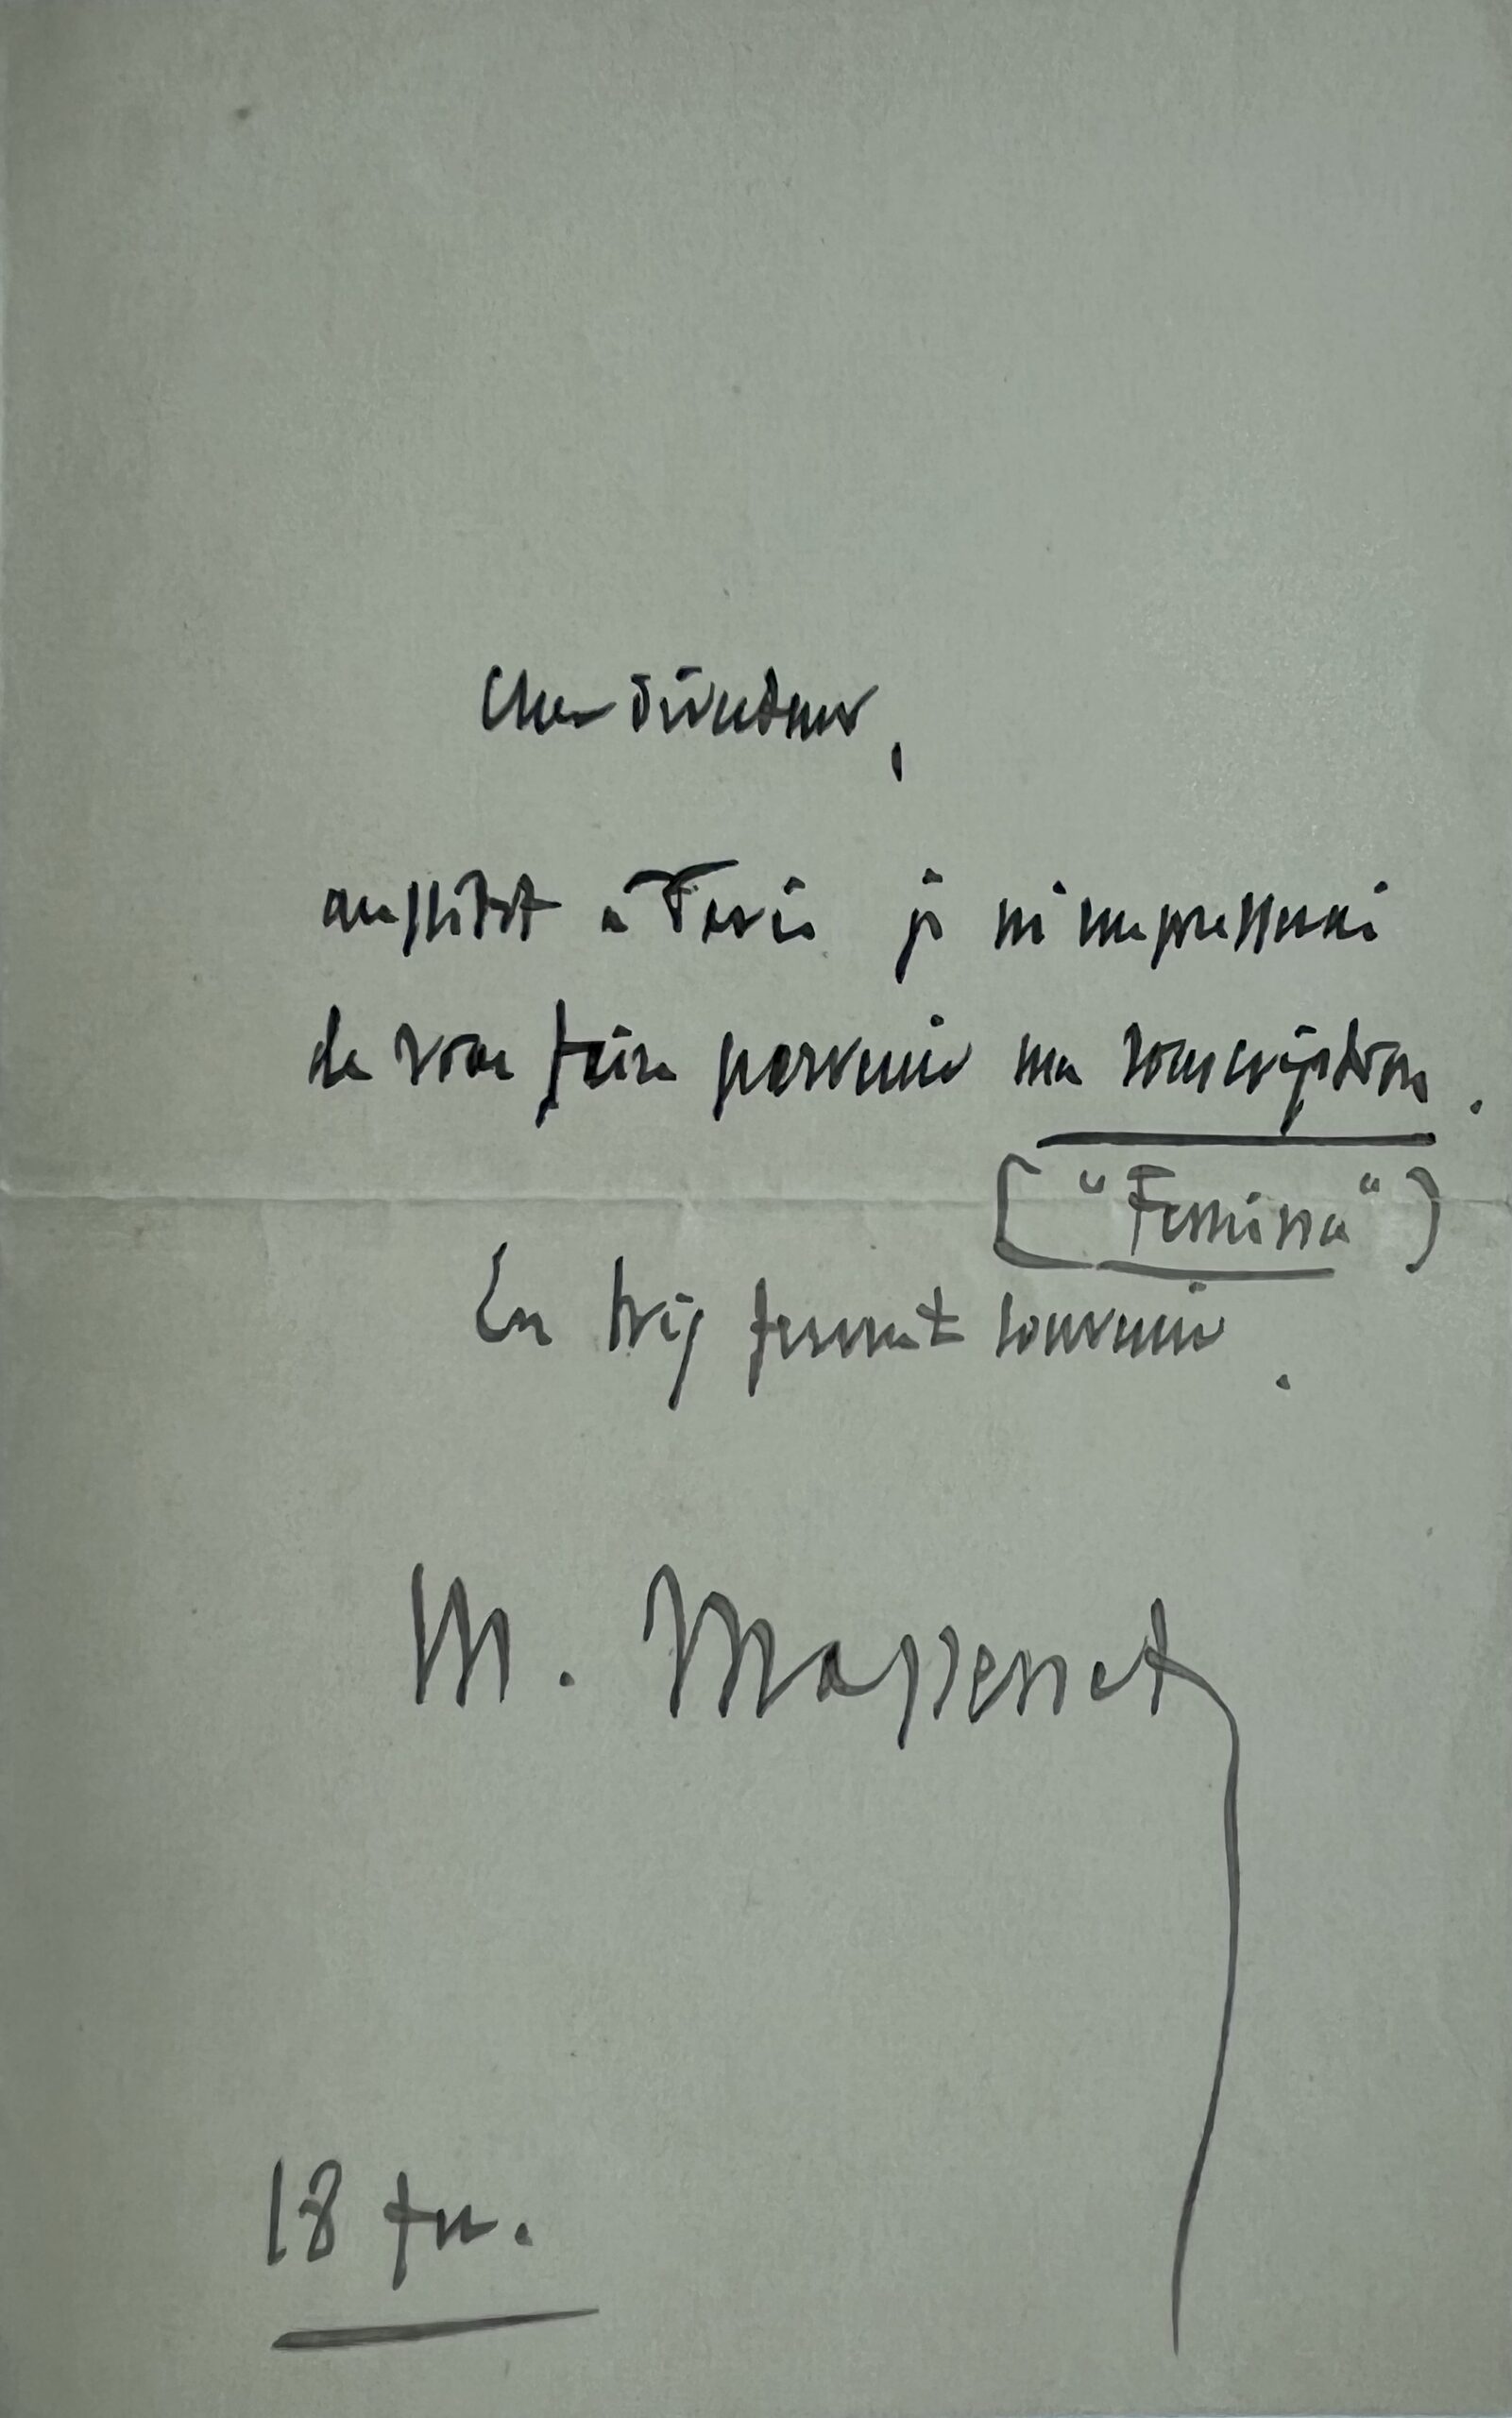 Cher Directeur,
aussitôt à Paris je m'empresserai
de vous faire parvenir ma souscription.
("Femina")
En très fervent souvenir.
M. Massenet
18 fév.